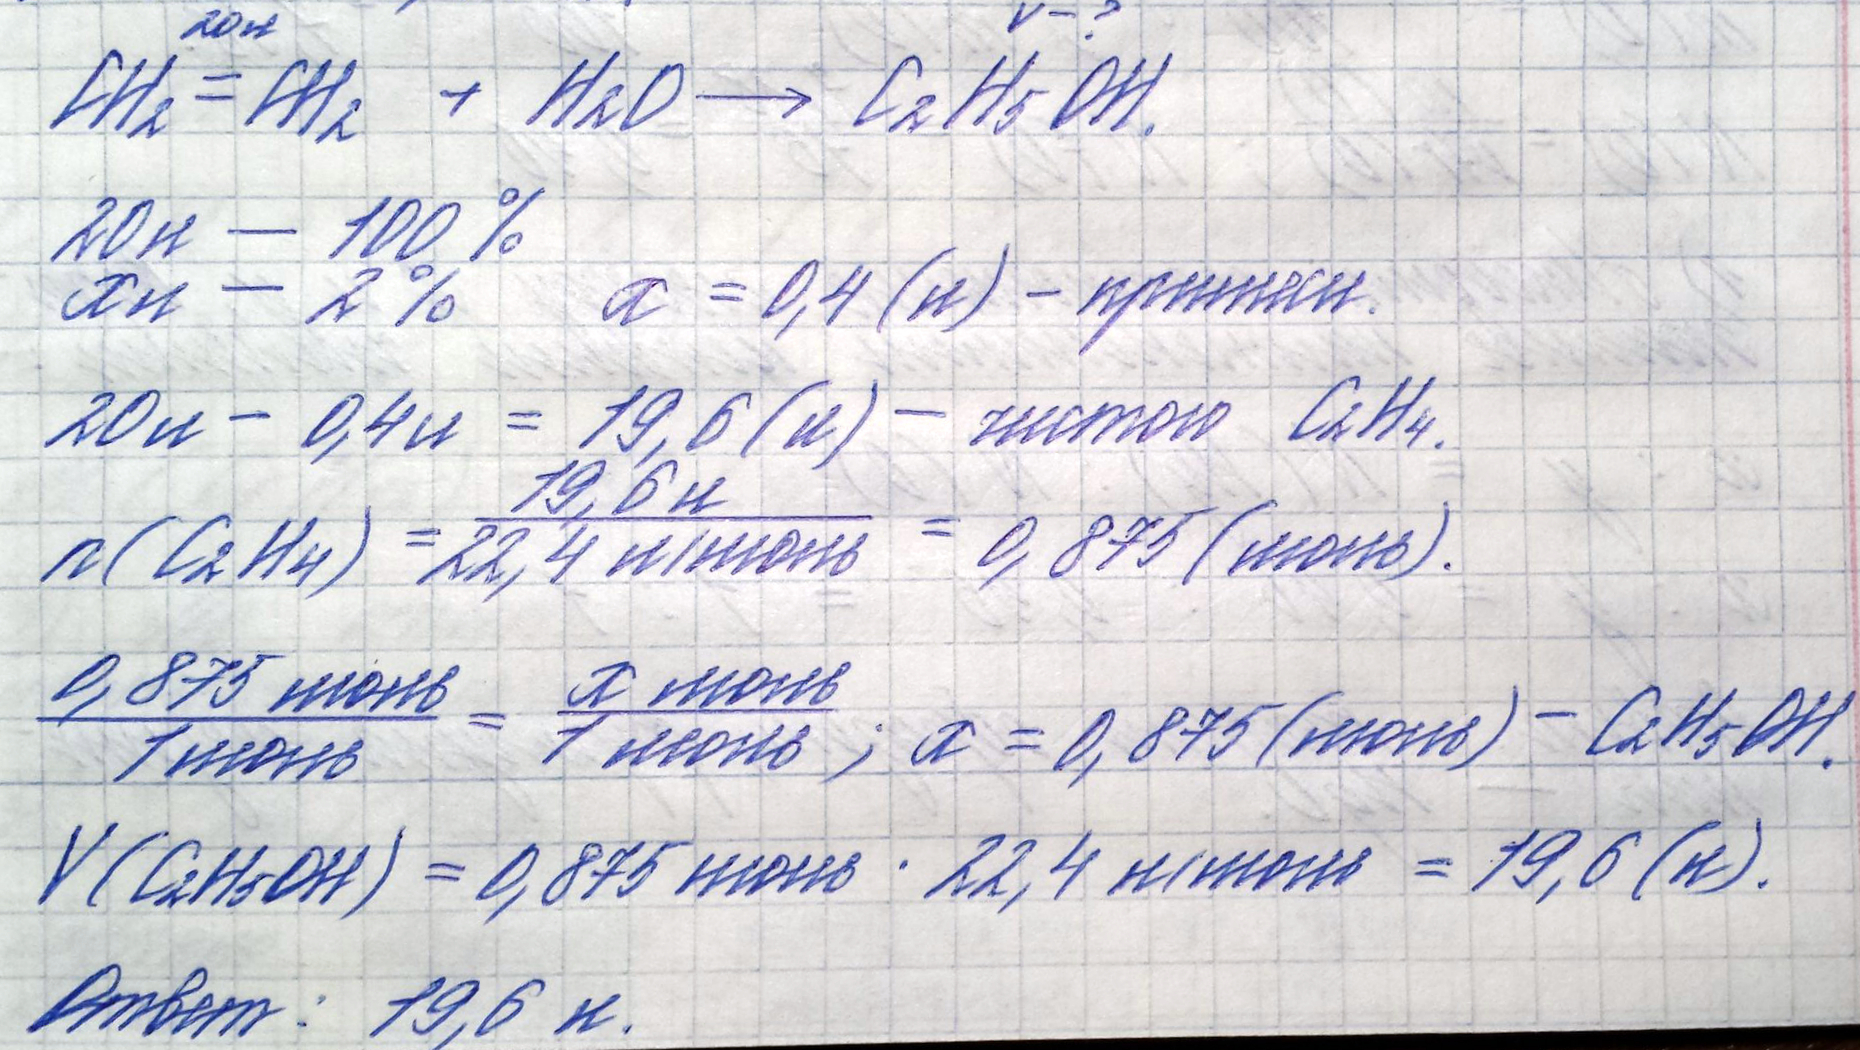 20л V-?
CH₂=CH₂ + H₂O ⟶ C₂H₅OH.
20л — 100%
xл — 2% x = 0,4 (л) - примеси.
20л - 0,4л = 19,6 (л) - чистого C₂H₄.
n(C₂H₄) = 19,6л / 22,4 л/моль = 0,875 (моль).
0,875 моль / 1 моль = x моль / 1 моль ; x = 0,875 (моль) - C₂H₅OH.
V(C₂H₅OH) = 0,875 моль · 22,4 л/моль = 19,6 (л).
Ответ: 19,6 л.